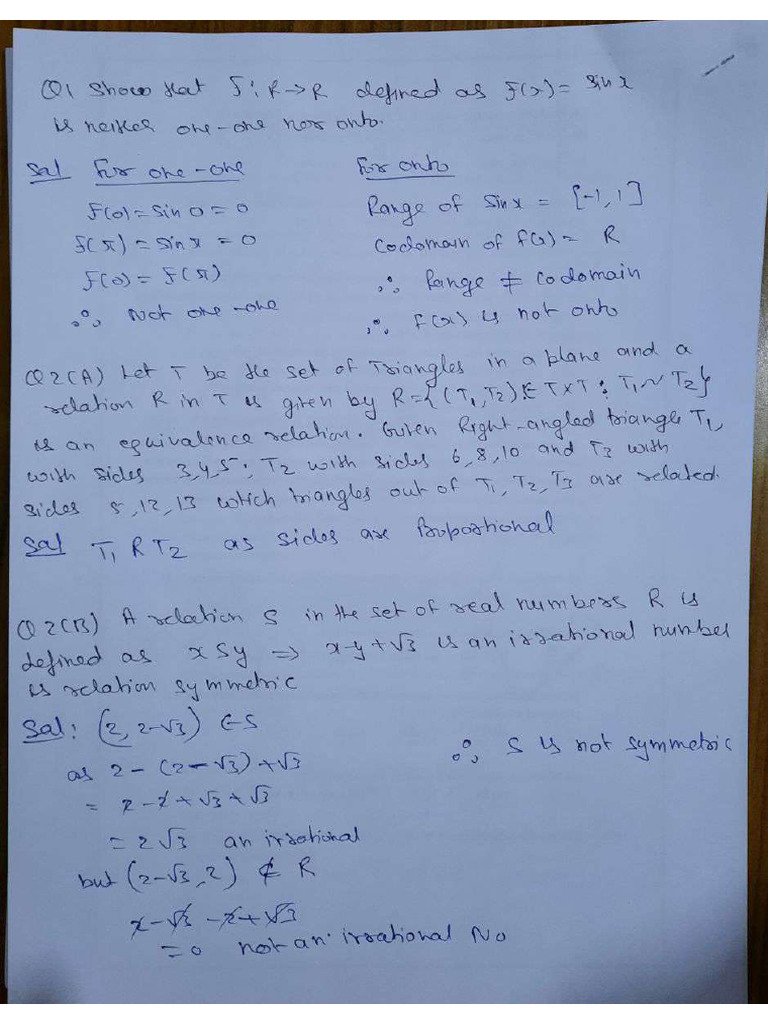 Q1 Show that f: R→R defined as f(x) = sin x
is neither one-one nor onto.
Sol For one-one
f(0) = sin 0 = 0
f(π) = sin π = 0
f(0) = f(π)
∴ Not one-one
For onto
Range of sin x = [-1, 1]
Codomain of f(x) = R
∴ Range ≠ Codomain
∴ f(x) is not onto
Q2(A) Let T be the set of Triangles in a plane and a
relation R in T is given by R = {(T₁, T₂) ∈ T×T : T₁ ~ T₂}
is an equivalence relation. Given Right-angled triangle T₁,
with sides 3,4,5; T₂ with sides 6,8,10 and T₃ with
sides 5,12,13 which triangles out of T₁, T₂, T₃ are related.
Sol T₁ R T₂ as sides are Proportional
Q2(B) A relation S in the set of real numbers R is
defined as x S y ⇒ x-y+√3 is an irrational number
is relation symmetric
Sol: (2, 2-√3) ∈ S
as 2 - (2-√3) + √3
= 2-2+√3+√3
= 2√3 an irrational
but (2-√3, 2) ∉ R
2-√3-2+√3
= 0 not an irrational No
∴ S is not symmetric